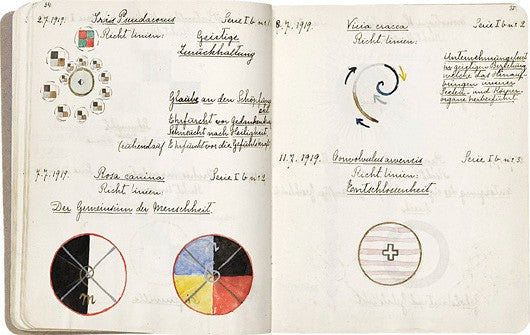 34
2.7. 1919. Iris Pseudacorus Serie I b nº 1
Richt Linien: Geistige
Zurückhaltung
Glaube an den Schöpfung
Ehrfurcht vor Gedanken
Sehnsucht nach Heiligkeit,
Ehrfurcht vor die Gefühls
7.7. 1919. Rosa canina Serie I b nº 2
Richt Linien:
Der Gemeinsinn der Menschheit.
m
35
8.7. 1919. Vicia cracca Serie I b nº 2
Richt Linien:
Unternehmungslust
geistigen
welche das
unserer
Seelen- und Körper-
organe herbeiführt.
11.7. 1919. Convolvulus arvensis Serie I b nº 3
Richt Linien:
Entschlossenheit